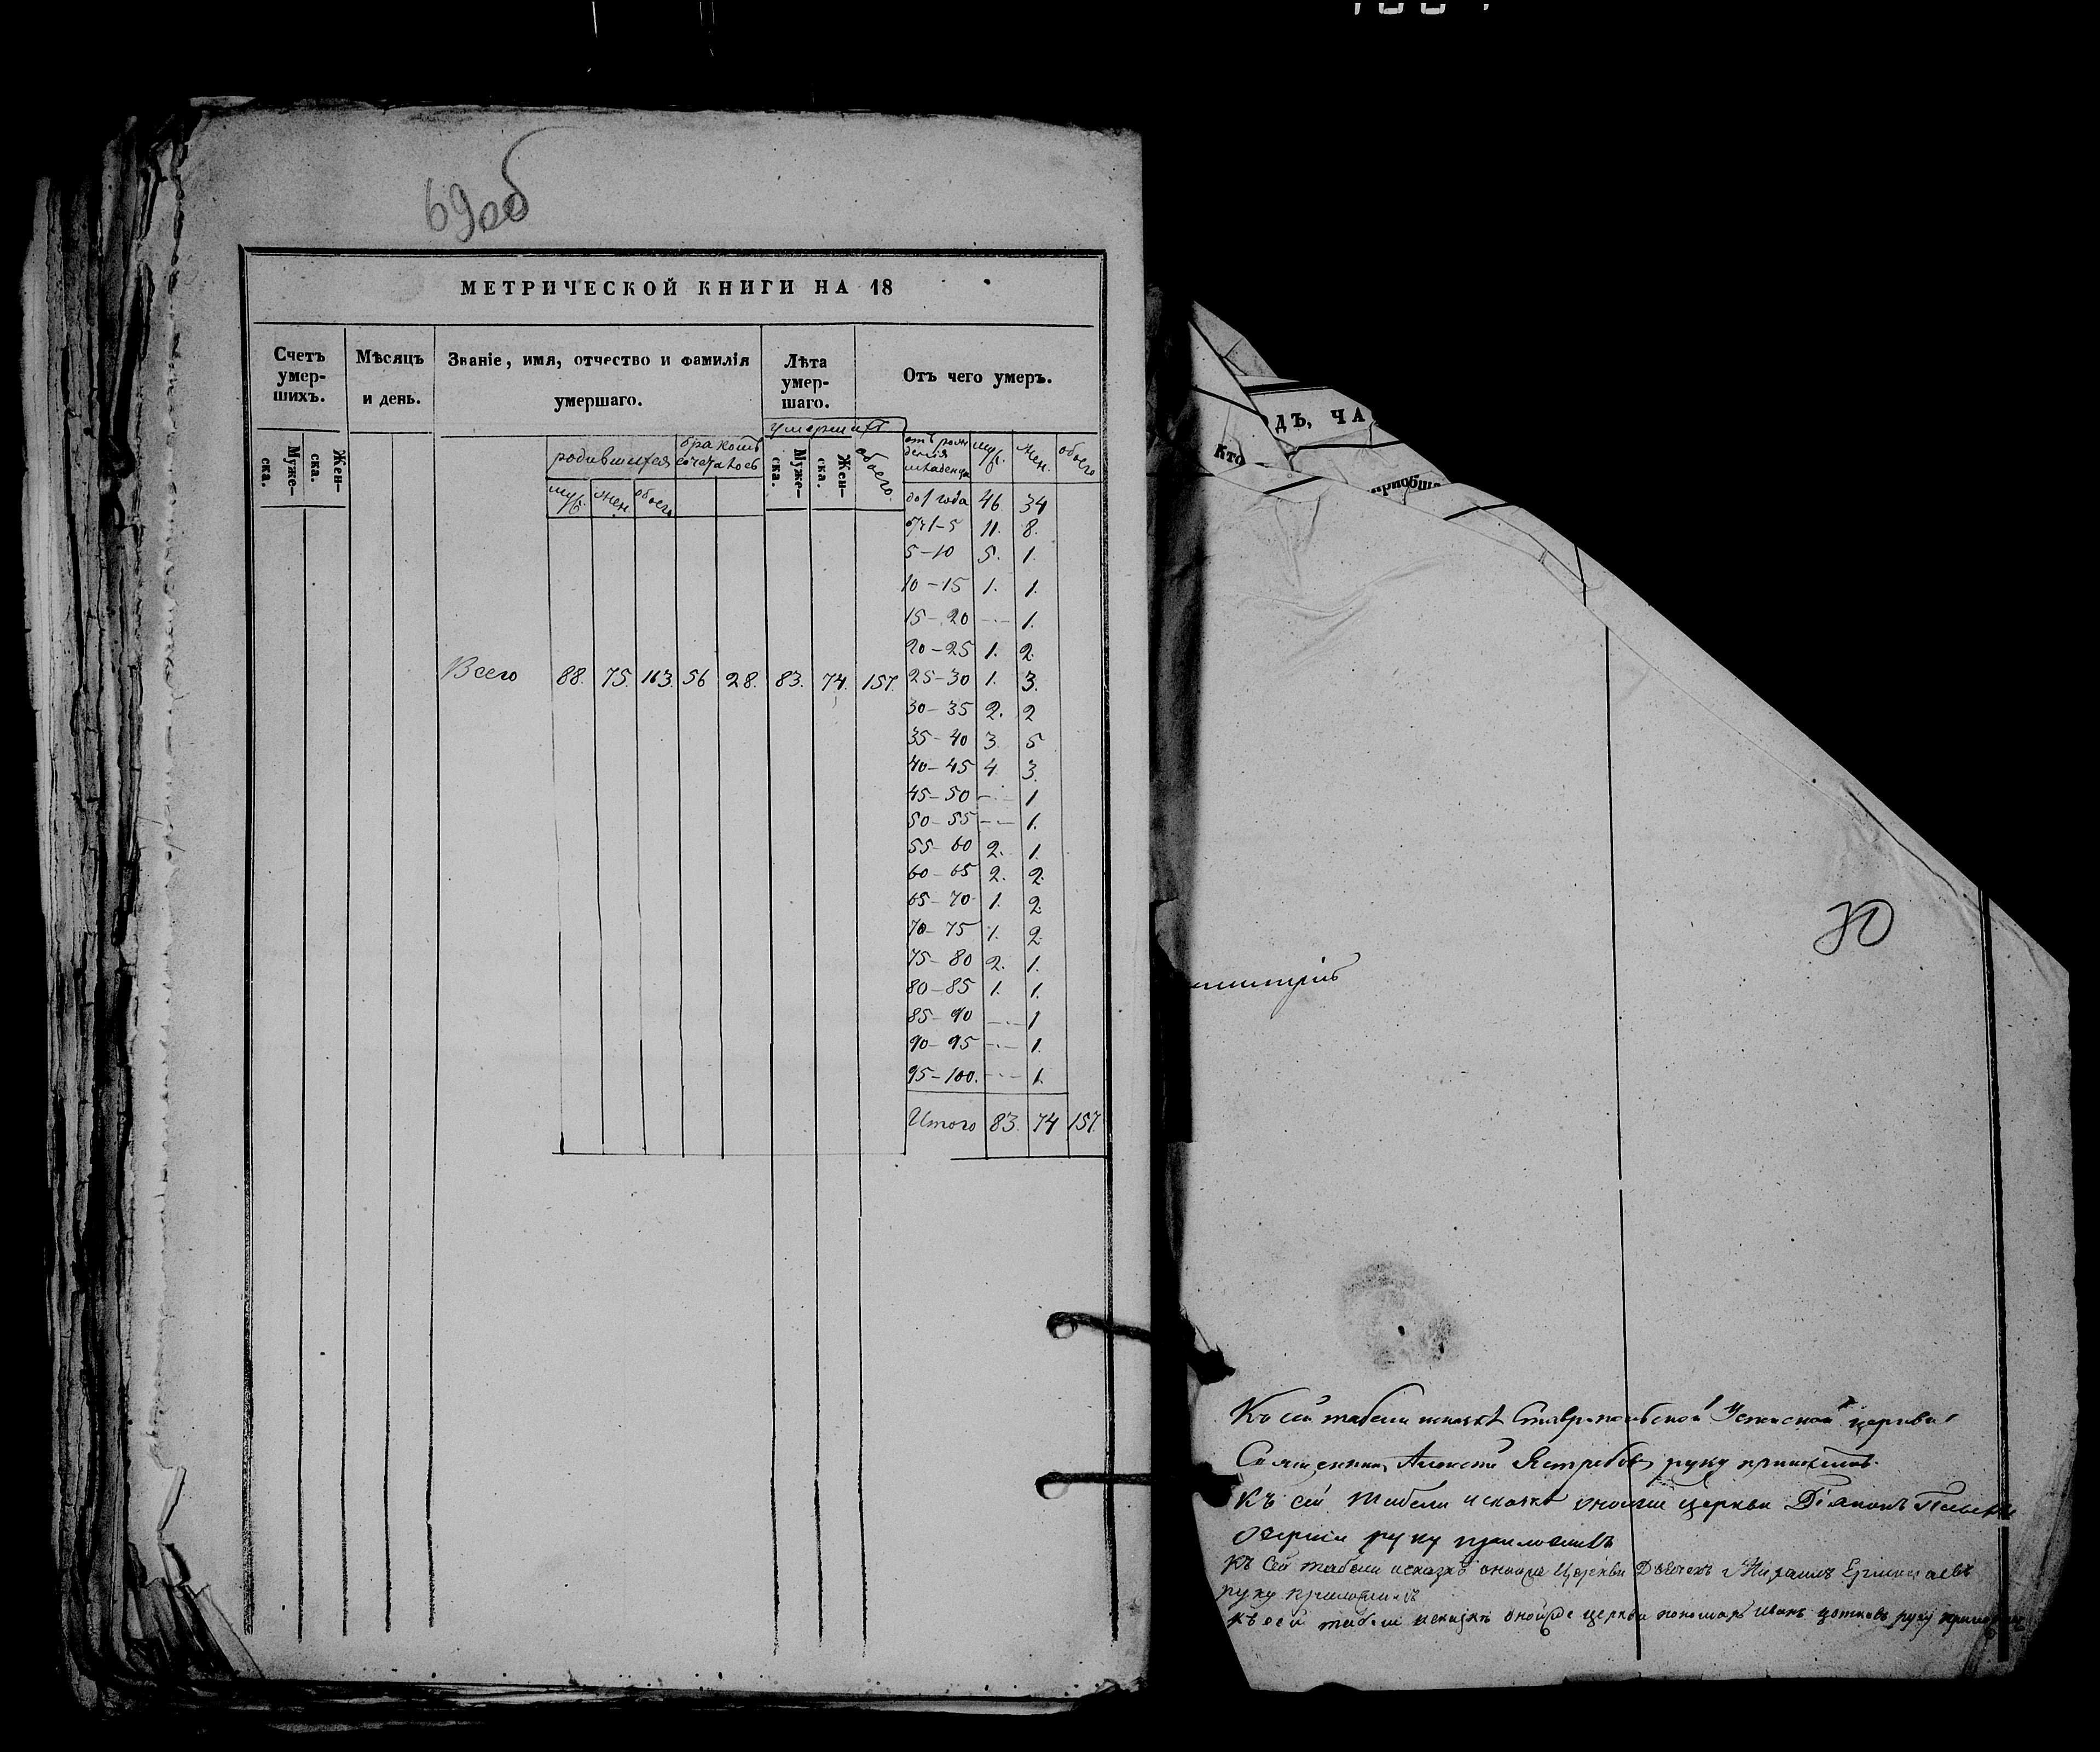 69об
МЕТРИЧЕСКОЙ КНИГИ НА 18
Счетъ умер- шихъ.
Мѣсяцъ и день.
Званіе, имя, отчество и фамилія умершаго.
Лѣта умер- шаго.
Отъ чего умеръ.
Муже- ска.
Жен- ска.
родившихся
бракомъ сочеталось
умершихъ
Муже- ска.
Жен- ска.
обоего.
муж. жен. обоего
муж. жен. обоего
до 1 года 46 34
отъ 1-5 11. 8.
5-10 5. 1.
10-15 1. 1.
15-20 -·- 1.
20-25 1. 2.
Всего 88. 75. 163. 56 28. 83. 74. 157.
25-30 1. 3.
30-35 2. 2
35-40 3. 5
40-45 4. 3.
45-50 -·- 1.
50-55 -·- 1.
55-60 2. 1.
60-65 2. 2.
65-70 1. 2.
70-75 1. 2.
75-80 2. 1.
80-85 1. 1.
85-90 -·- 1
90-95 -·- 1.
95-100. -·- 1.
Итого 83. 74 157.
ДЪ, ЧА
Кто
приобщ
70
Къ сей табели церкви
Священникъ Алексей Ястребовъ руку приложилъ.
Къ сей табели и сказкѣ оной же церкви Діаконъ
руку приложилъ
Къ сей табели и сказкѣ оной же Церкви Дьячекъ Михаилъ
руку приложилъ
Къ сей табели и сказкѣ оной же церкви пономарь Иванъ руку приложилъ